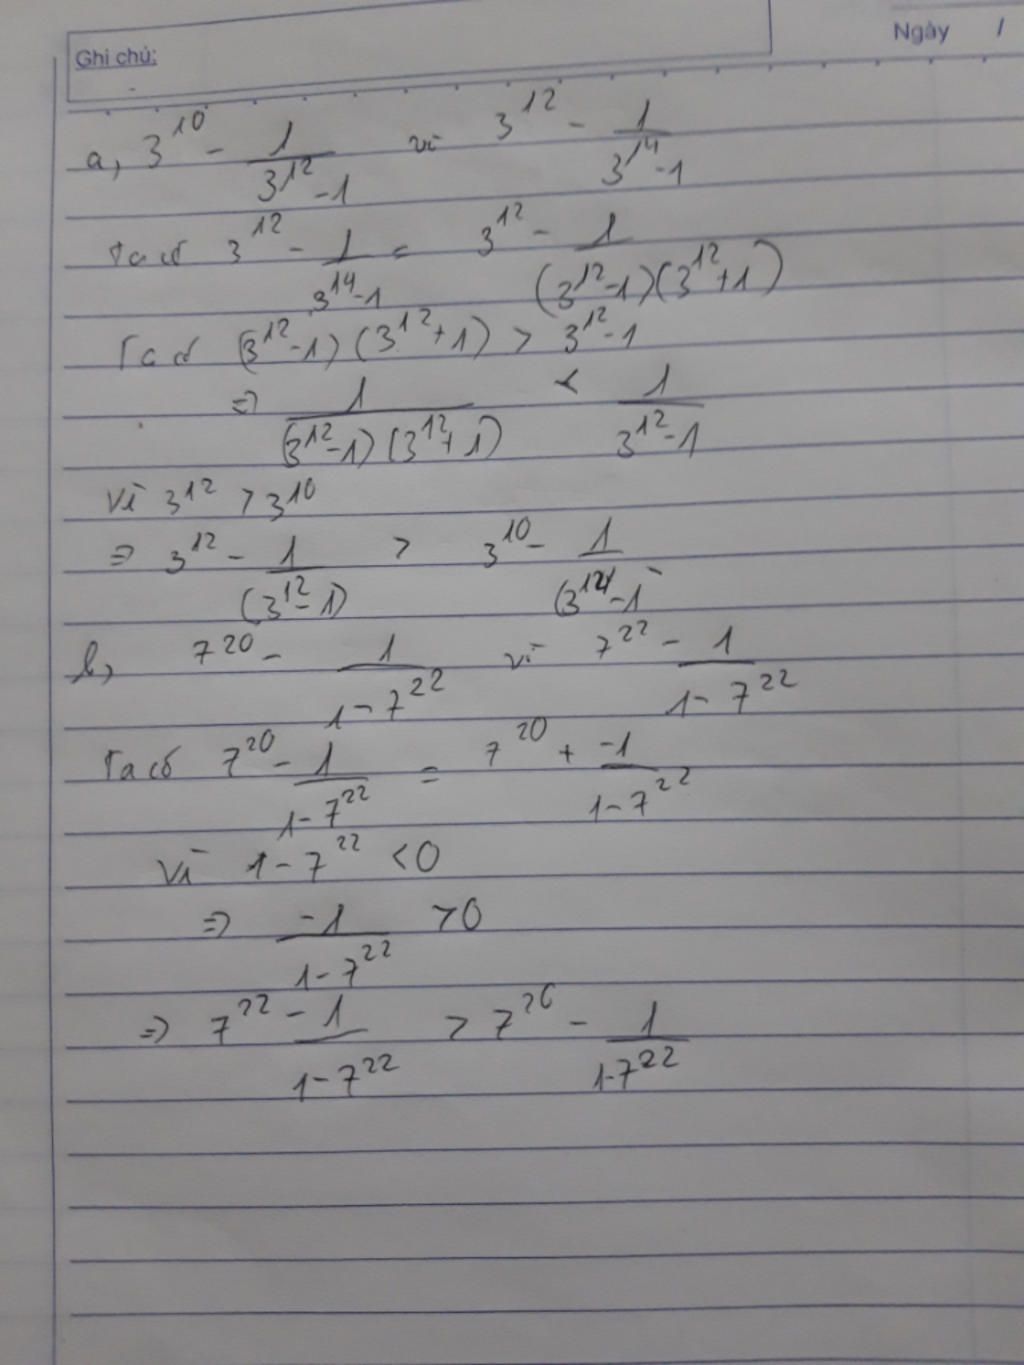 Ghi chú:
Ngày /
a, 3^10 - 1/(3^12 - 1) vì 3^12 - 1/(3^14 - 1)
Ta có 3^12 - 1/(3^14 - 1) = 3^12 - 1/((3^12 - 1)(3^12 + 1))
Ta có (3^12 - 1)(3^12 + 1) > 3^12 - 1
=> 1/((3^12 - 1)(3^12 + 1)) < 1/(3^12 - 1)
Vì 3^12 > 3^10
=> 3^12 - 1/(3^12 - 1) > 3^10 - 1/(3^12 - 1
b, 7^20 - 1/(1 - 7^22) vì 7^22 - 1/(1 - 7^22)
Ta có 7^20 - 1/(1 - 7^22) = 7^20 + -1/(1 - 7^22)
Vì 1 - 7^22 < 0
=> -1/(1 - 7^22) > 0
=> 7^22 - 1/(1 - 7^22) > 7^20 - 1/(1 - 7^22)